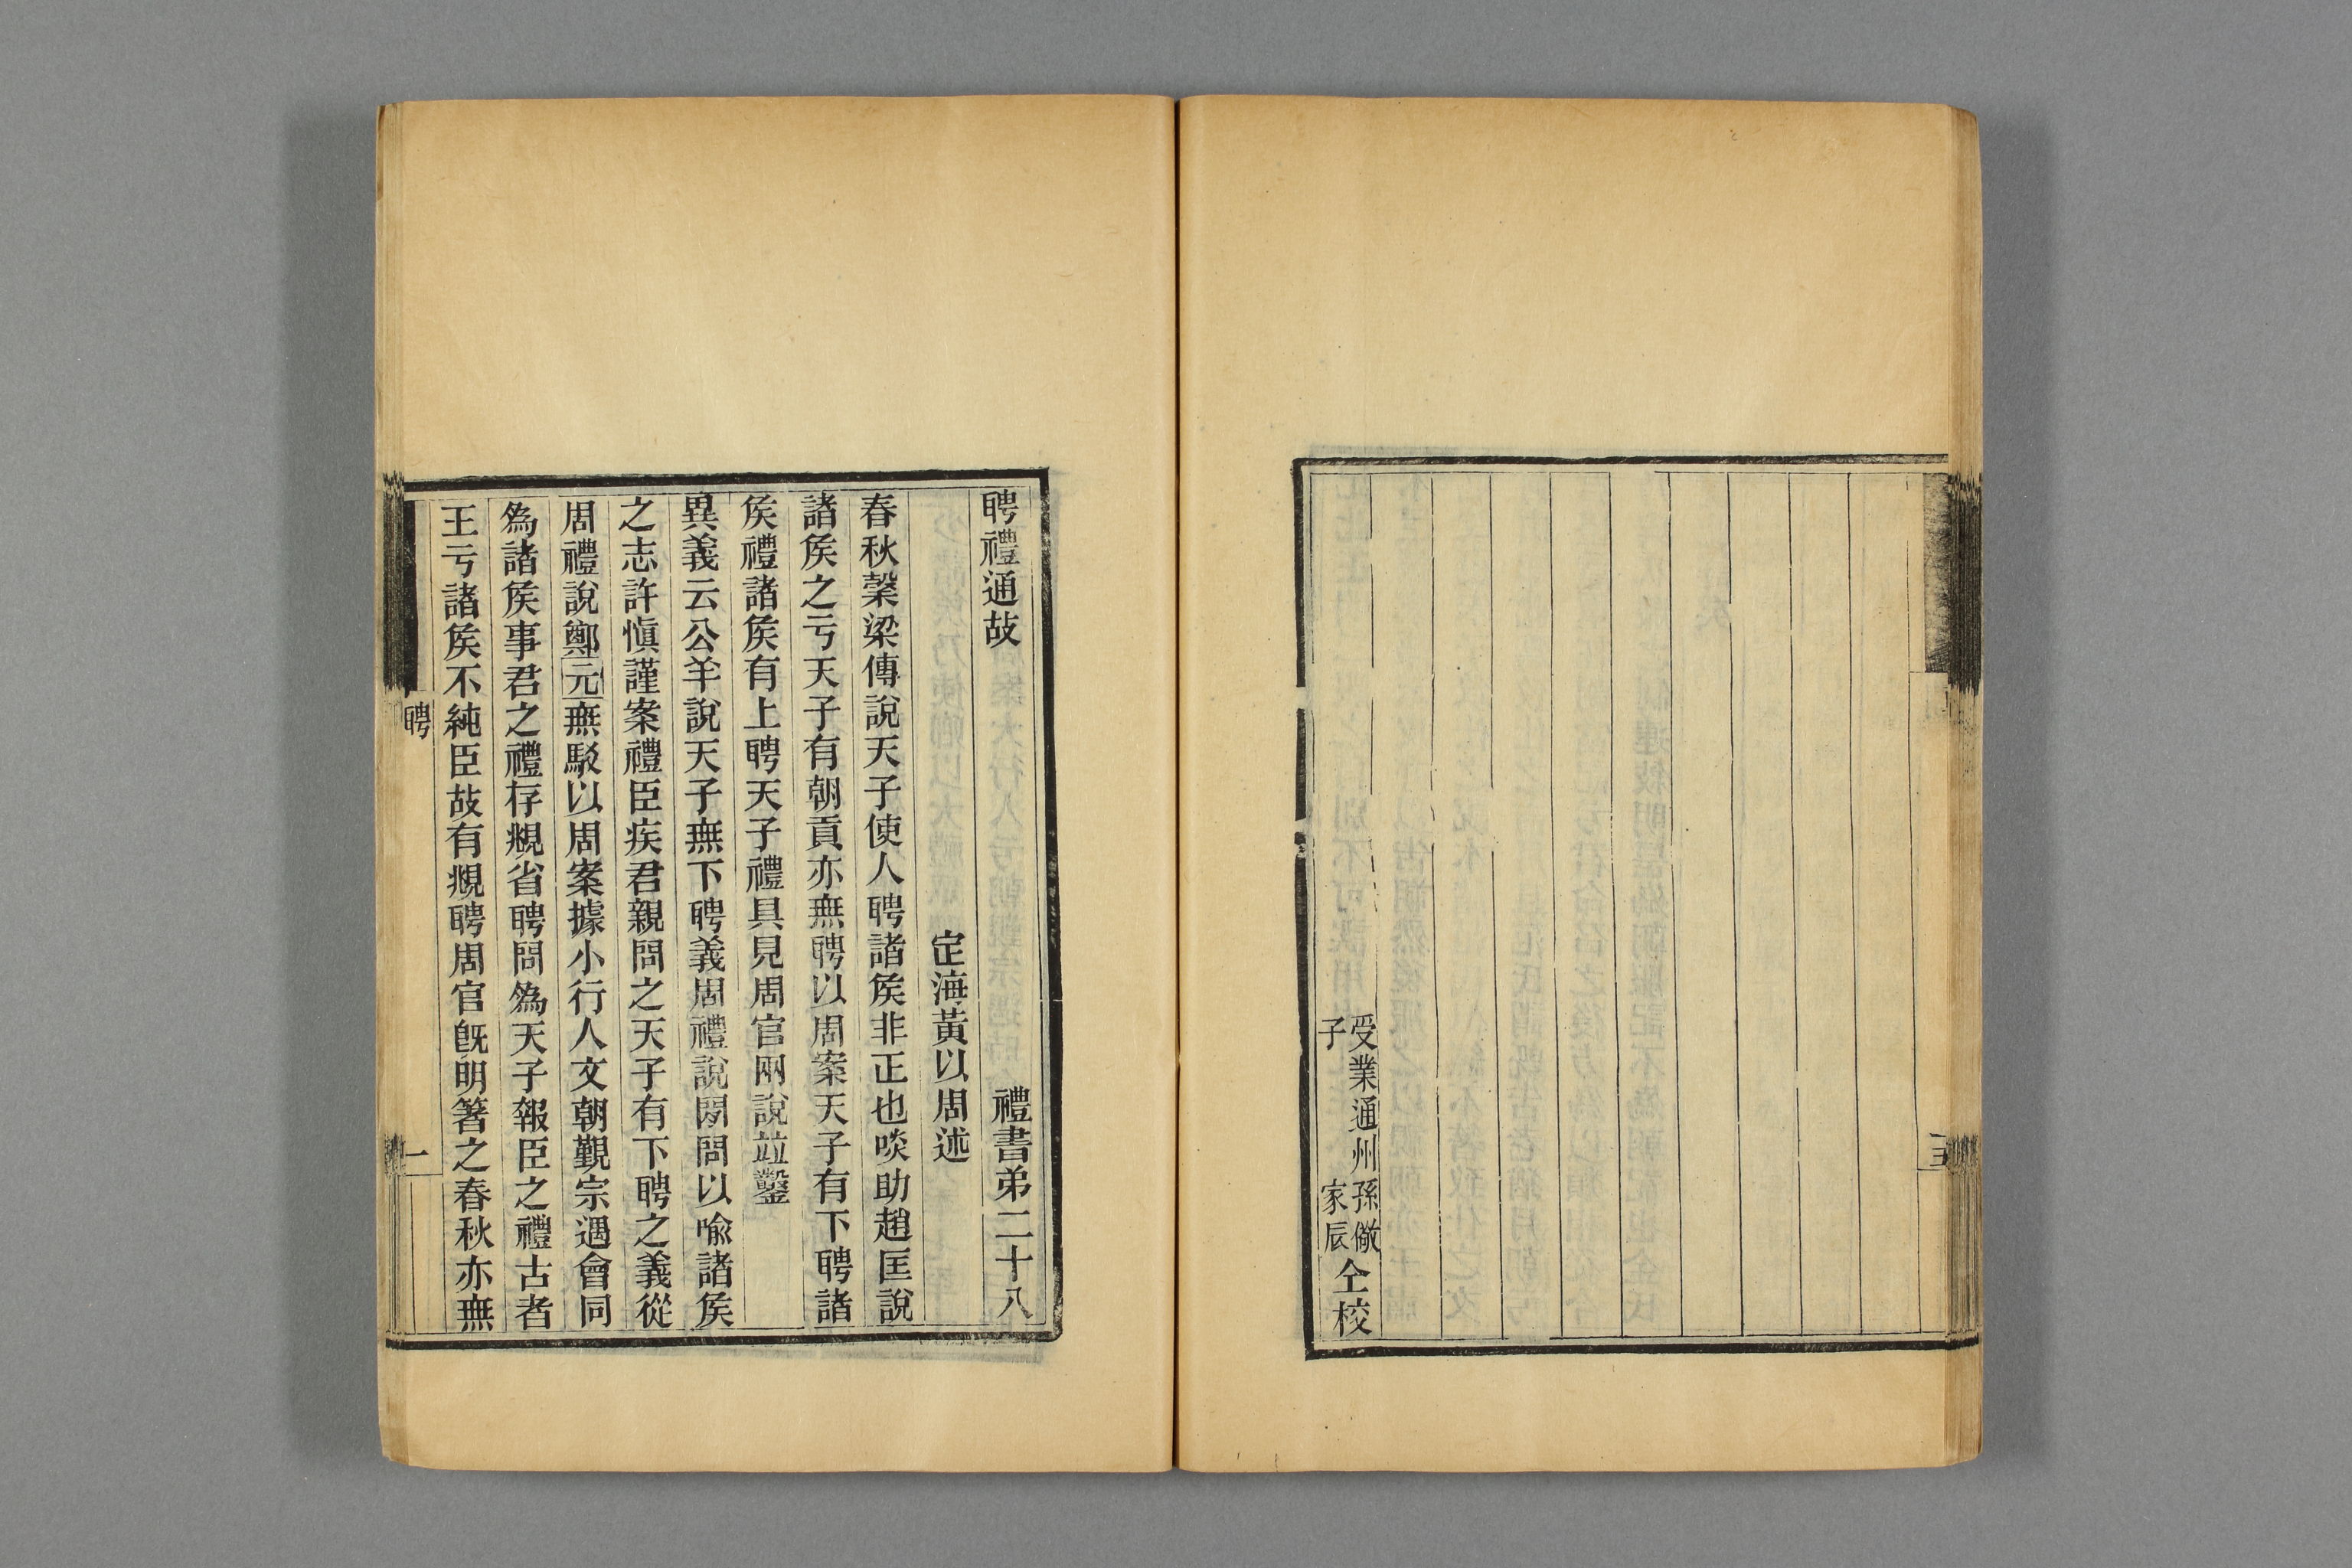 受業通州孫儆
子家辰
仝校
聘禮通故 禮書弟二十八
定海黃以周述
春秋榖梁傳說天子使人聘諸矦非正也啖助趙匡說
諸矦之亏天子有朝貢亦無聘以周案天子有下聘諸
矦禮諸矦有上聘天子禮具見周官兩說竝鑿
異義云公羊說天子無下聘義周禮說閒問以喻諸矦
之志許愼謹案禮臣疾君親問之天子有下聘之義從
周禮說鄭元無駁以周案據小行人文朝覲宗遇會同
爲諸矦事君之禮存覜省聘問爲天子報臣之禮古者
王亏諸矦不純臣故有覜聘周官旣明箸之春秋亦無
聘
一